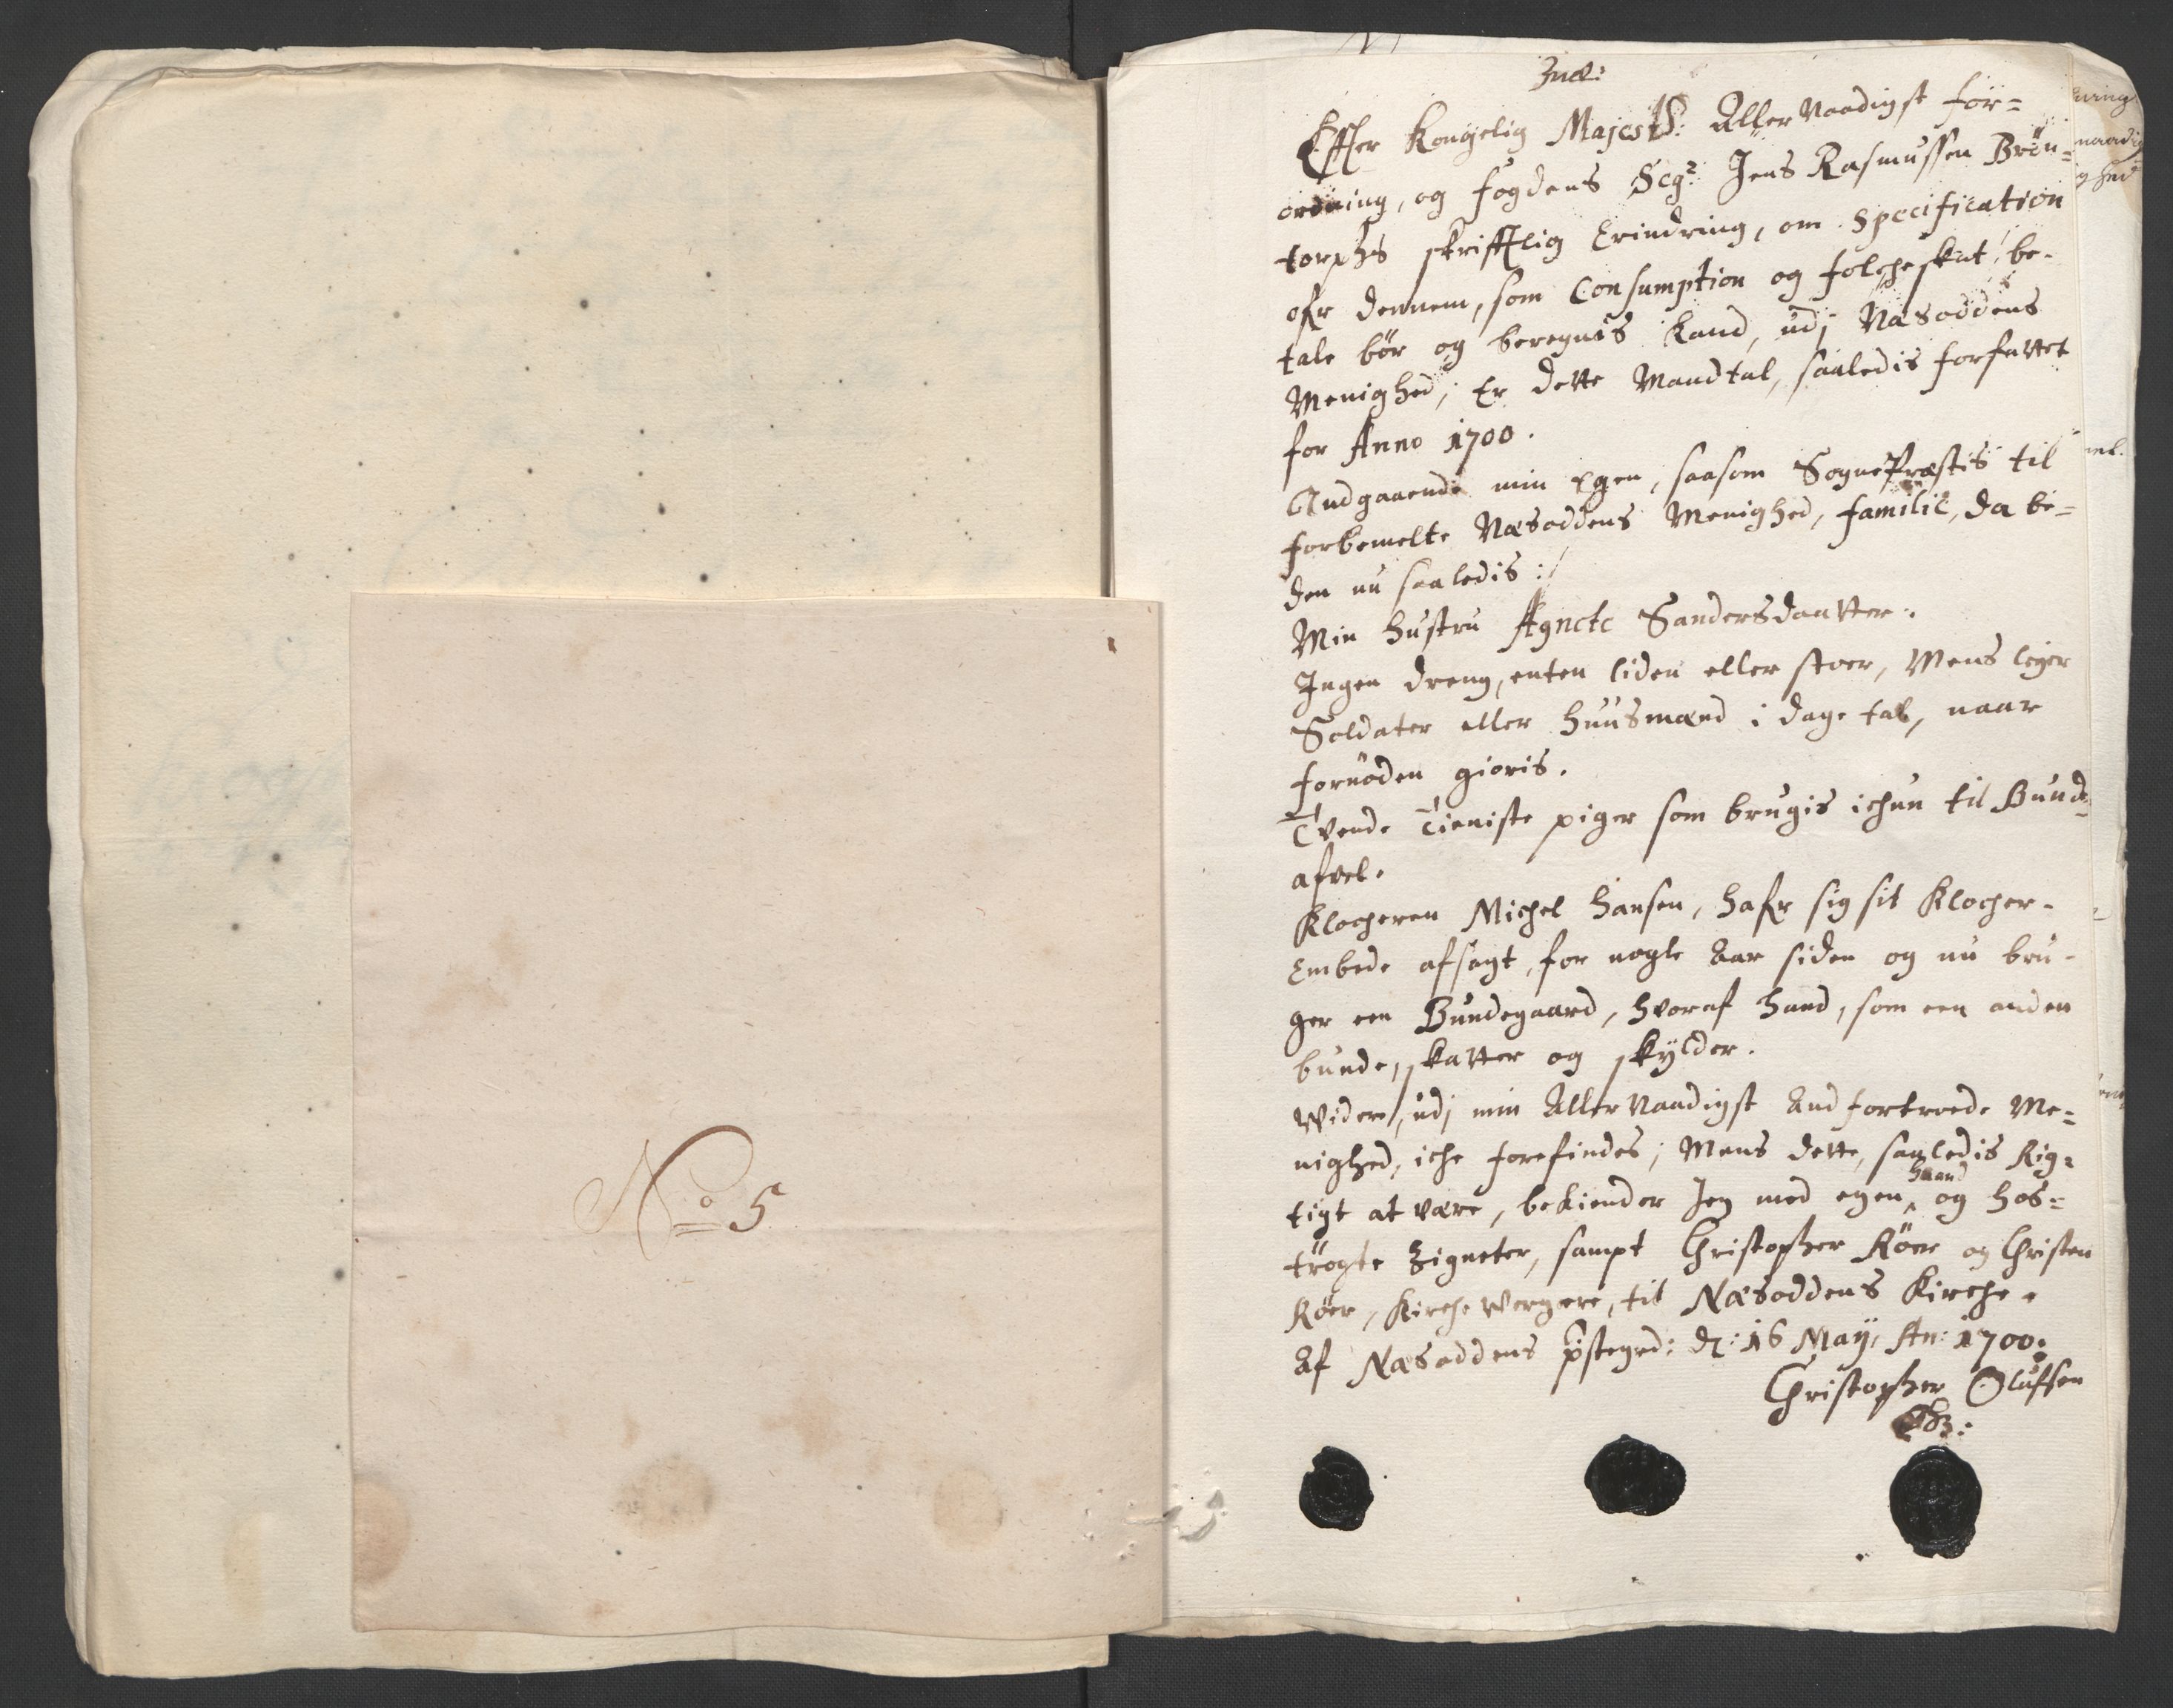 No 5
Effter Kongelig Majestß: Aller Naadigst for=
ordning, og fogdens Sgr Jens Rasmussen Brün=
torphs skrifftlig Erindring, om Specification
ofr dennem, som Consumption og folcheskat be-
tale bør og beregnis kand, udj Næsoddens
Menighed, Er dette Mandtal, saaledis forfattet
for Anno 1700.
Andgaaende min egen, saasom SognePræstis til
forbemelte Næsoddens Menighed, familie, da be=
den nu saaledis:/
Min hustru Agnete Sandersdaatter.
Ingen dreng, enten liden eller stoer, Mens leyer
Soldater eller huusmænd i dage tal, naar
fornøden gioris.
Tvende Tieniste piger som brugis ichun til Bunde=
afvel.
Klocheren Michel Hansen, hafr sig sit Klocher-
Embede afsagt, for nogle Aar siden og nu bru-
ger een Bundegaard, hvoraf hand, som een anden
bunde, skatter og skÿlder.
Widere, udj min Aller Naadigst Andfortroede Me=
nighed, iche forefindes; Mens dette, saaledis Rig=
tigt at være, bekiender Jeg med egen haand og hos=
trÿgte Zigneter, sampt Christopher Röer og Christen
Röer, Kirche Wergere, til Næsoddens Kirche.
Af Næsoddens pstegrd: d: 16 Maÿ, An: 1700:
Christopher Oluffsen